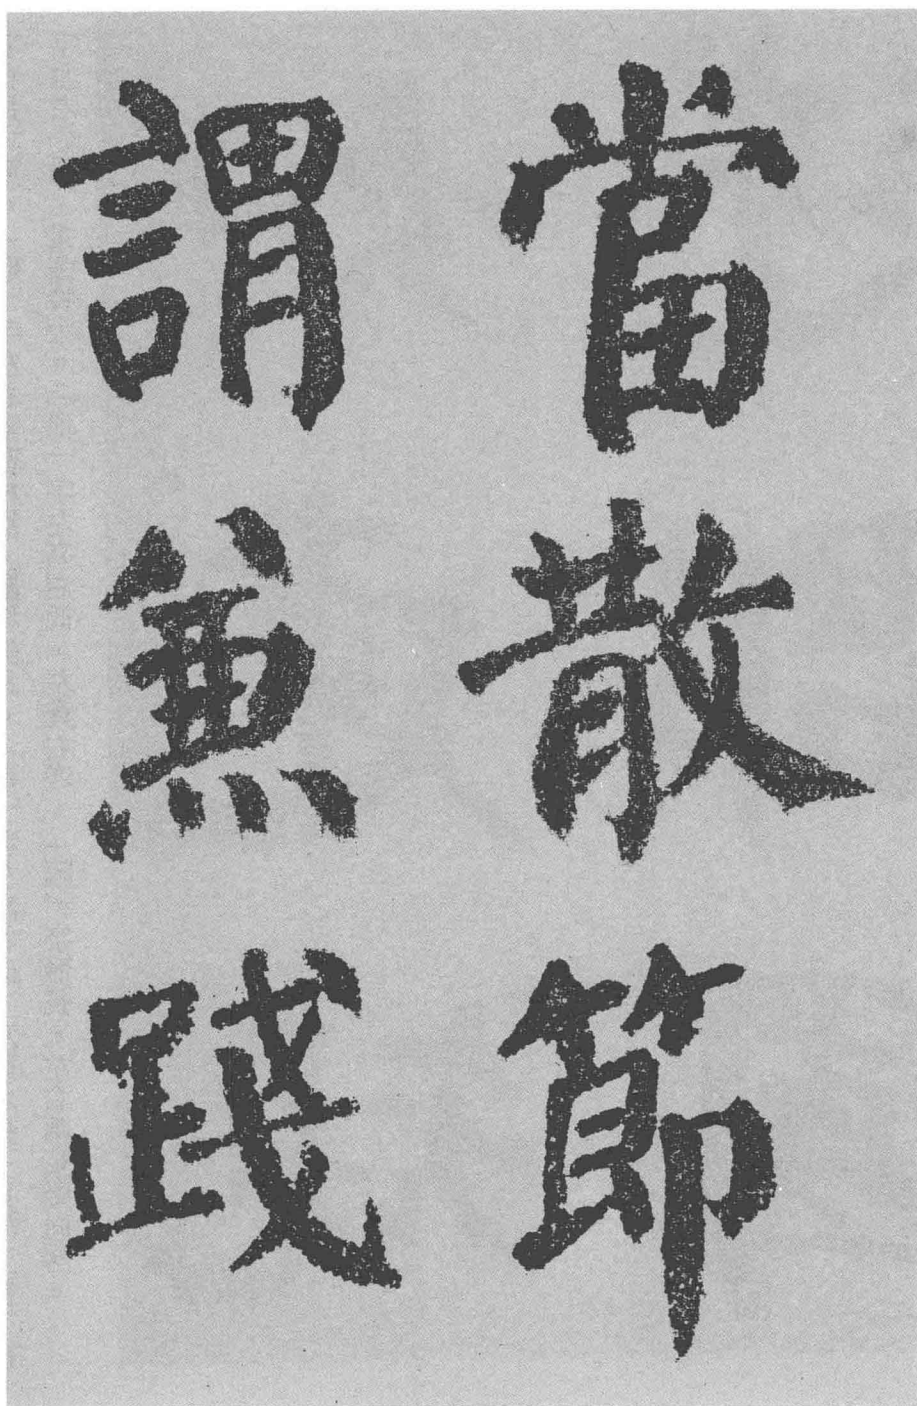 當散節
謂兼踐